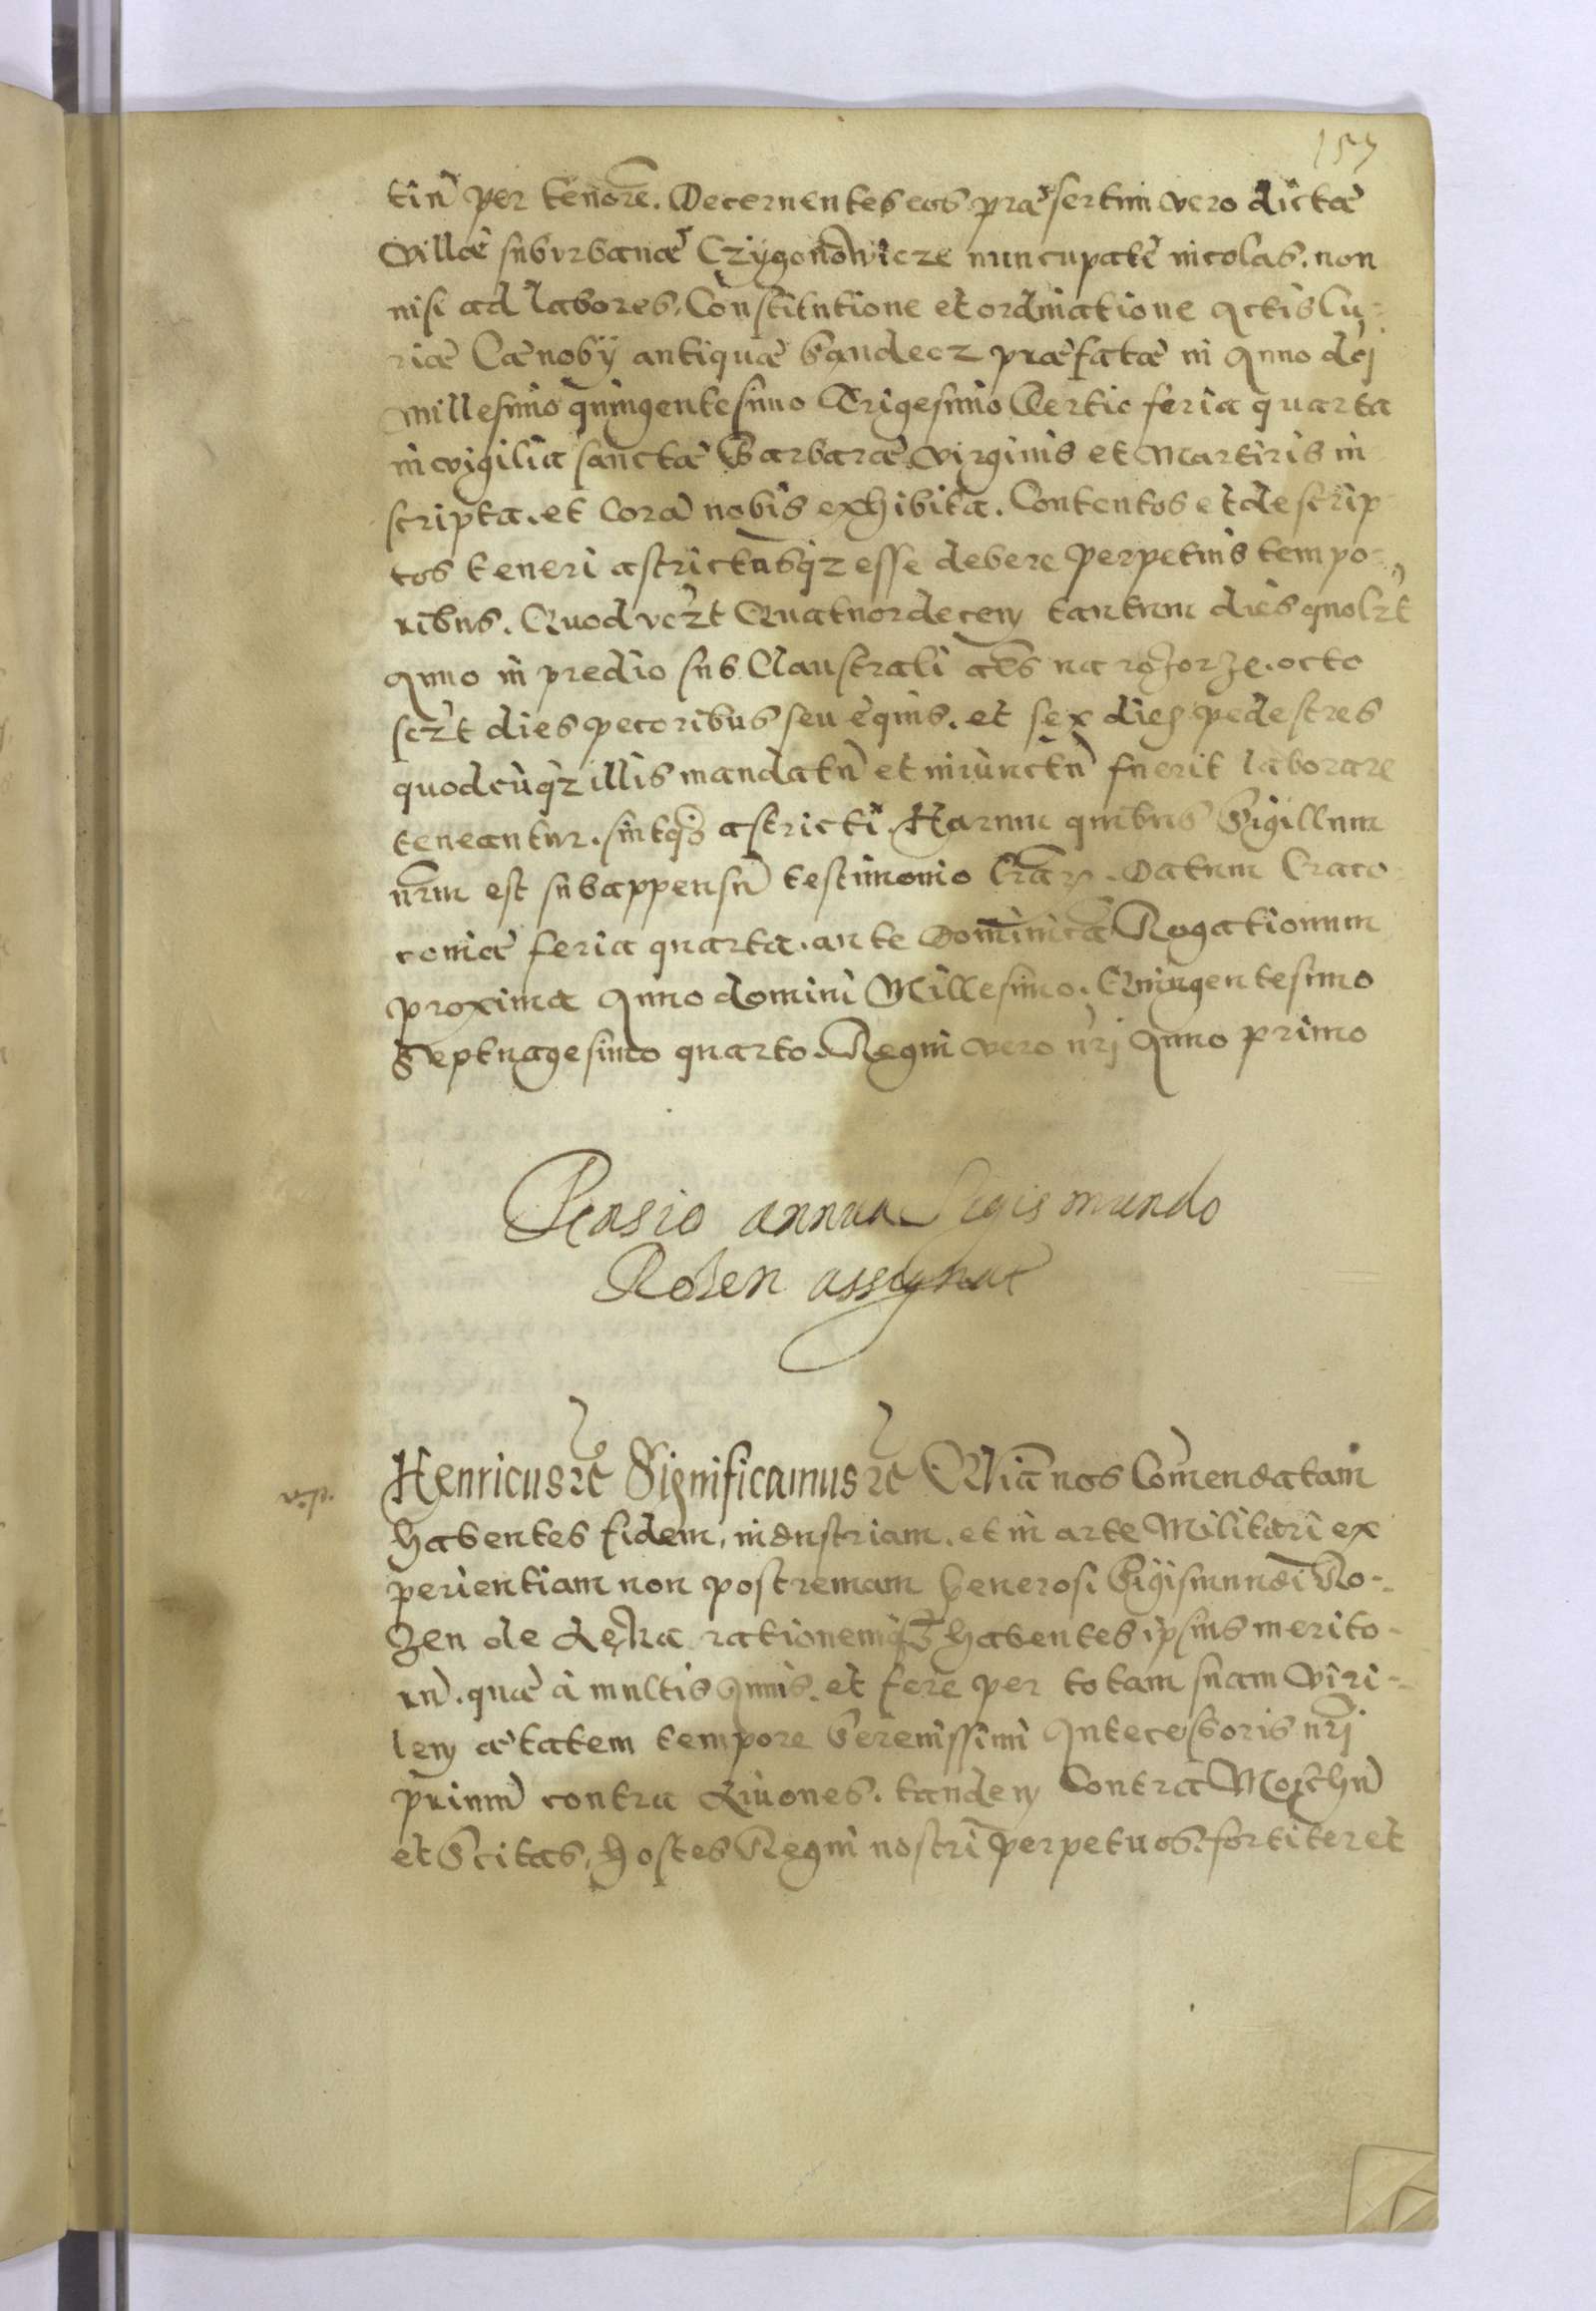 157
tiū per tenorē. Decernentes eos præsertim vero dictæ
villæ suburbanæ Czÿgonowicze nuncupatē incolas. non
nisi ad labores, Constitutione et ordinatione Actis Cu-
riæ Cænobÿ antiquæ Sandecz præfatæ in Anno dnj
Millesimo quingentesimo Trigesimo Tertio feria quarta
in vigilia sanctæ Barbaræ virginis et Martiris in
scripta. et Corā nobis exhibita. Contentos et descrip-
tos teneri astrictūsqz esse debere perpetuis tempo-
ribus. Quod vczt Quatuordecem tantum dies quolzt
Anno in predio sub Claustrali als na octo
sczt dies pecoribus seu equis. et sex dies pedestres
quodcūqz illis mandatū et iniūnctū fuerit laborare
teneantur. sintqz astricti. Harum quibus Sigillum
nrm est subappensū testimonio Datum Craco-
coniæ feria quarta. ante Dominicā Rogationum
proxima Anno domini Millesimo. Quingentesimo
Septuagesimo quarto. Regni vero nrj Anno primo
Pensio annua Sigismundo
Rosen assignat
Henricus etc Significamus etc Quiā nos Comendatam
habentes fidem, industriam. et in arte Militari ex
perientiam non postremam Generosi Sigismundi Ro-
zen de rationemqz habentes ipsius merito-
rū. quæ à multis Annis. et fere per totam suam viri-
lem ætatem tempore Serenissimi Antecessoris nrj
primū contra Liuones. tandem Contra Moschū
et Scitas, hostes Regni nostri perpetuos. fortiter et